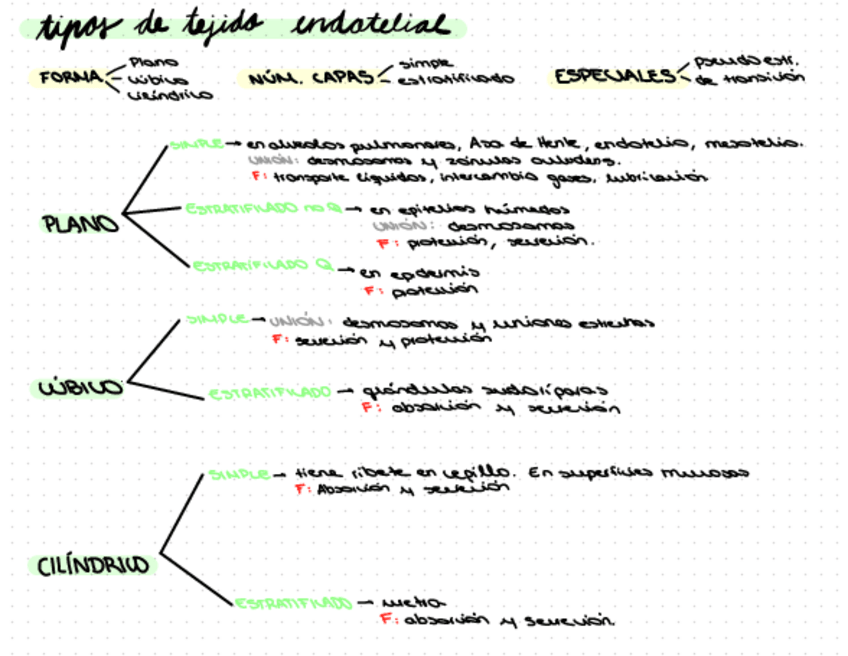 tipos de tejido endotelial
FORMA
Plano
cúbico
cilíndrico
NÚM. CAPAS
simple
estratificado
ESPECIALES
pseudoestr.
de transición
PLANO
SIMPLE → en alveolos pulmonares, Asa de Henle, endotelio, mesotelio.
UNIÓN: desmosomas y zónulas occludens.
F: transporte líquidos, intercambio gases, lubricación
ESTRATIFICADO no Q → en epitelios húmedos
UNIÓN: desmosomas
F: protección, secreción.
ESTRATIFICADO Q → en epidermis
F: protección
CÚBICO
SIMPLE → UNIÓN: desmosomas y uniones estrechas
F: secreción y protección
ESTRATIFICADO → glándulas sudoríparas
F: absorción y secreción
CILÍNDRICO
SIMPLE → tiene ribete en cepillo. En superficies mucosas
F: Absorción y secreción
ESTRATIFICADO → uretra
F: absorción y secreción